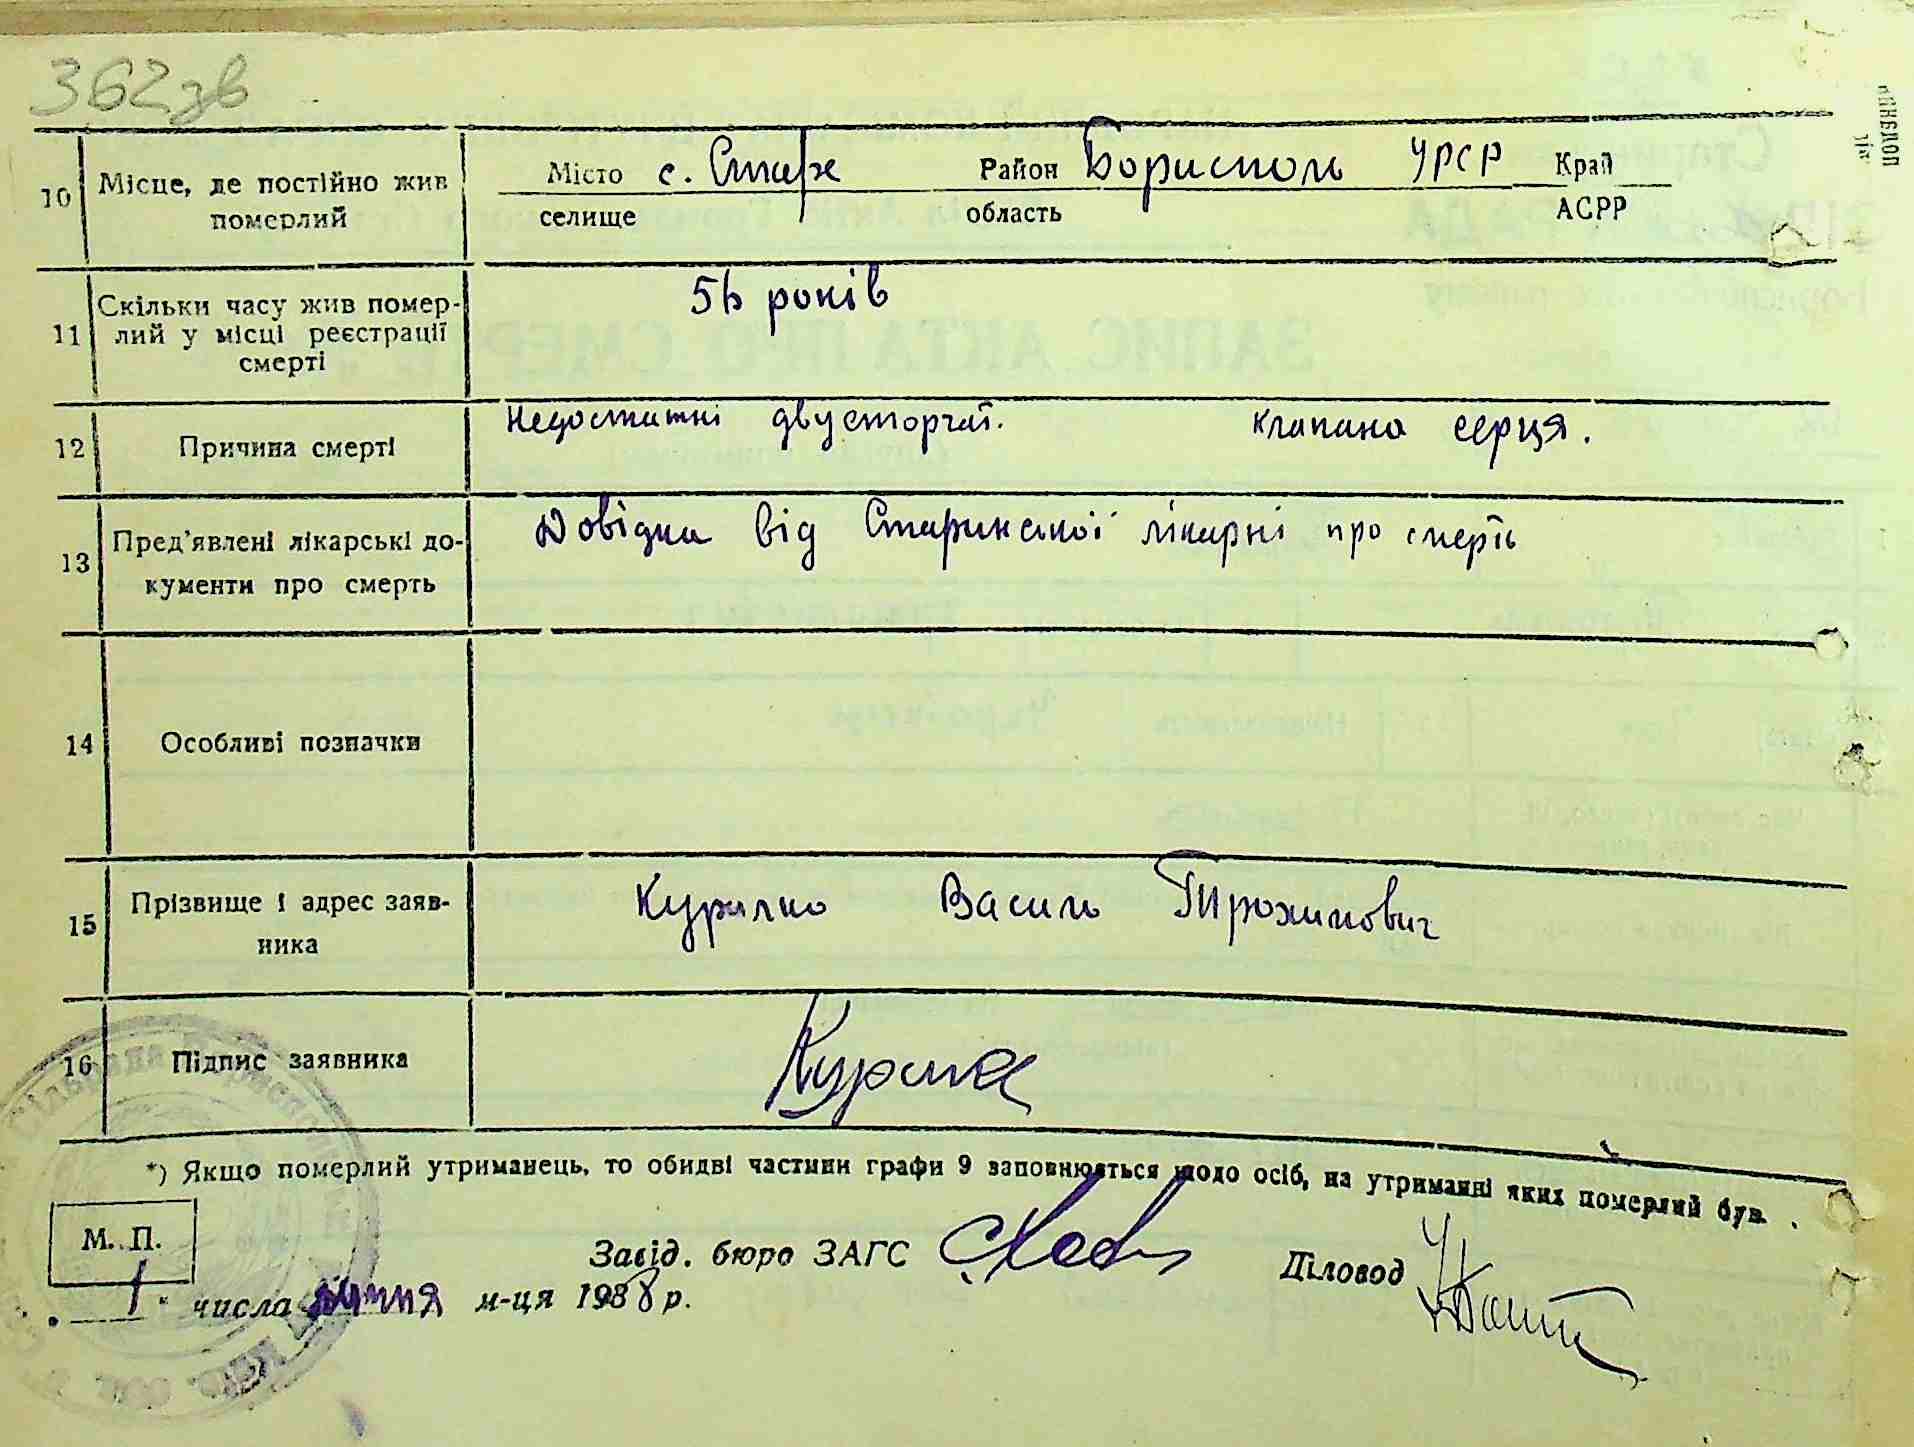 362зв
10 Місце, де постійно жив померлий Місто с. Старе Район Борисполь УРСР Край
селище область АСРР
11 Скільки часу жив помер-
лий у місці реєстрації
смерті
56 років
12 Причина смерті Недостатні двусторчат. клапана серця.
13 Пред'явлені лікарські до-
кументи про смерть
Довідка від Старинської лікарні про смерть
14 Особливі позначки
15 Прізвище і адрес заяв-
ника
Курилко Василь Трохимович
16 Підпис заявника
*) Якщо померлий утриманець, то обидві частини графи 9 заповнюється щодо осіб, на утриманні яких померлий був.
М. П.
Завід. бюро ЗАГС Діловод
"1" числа липня м-ця 1938 р.